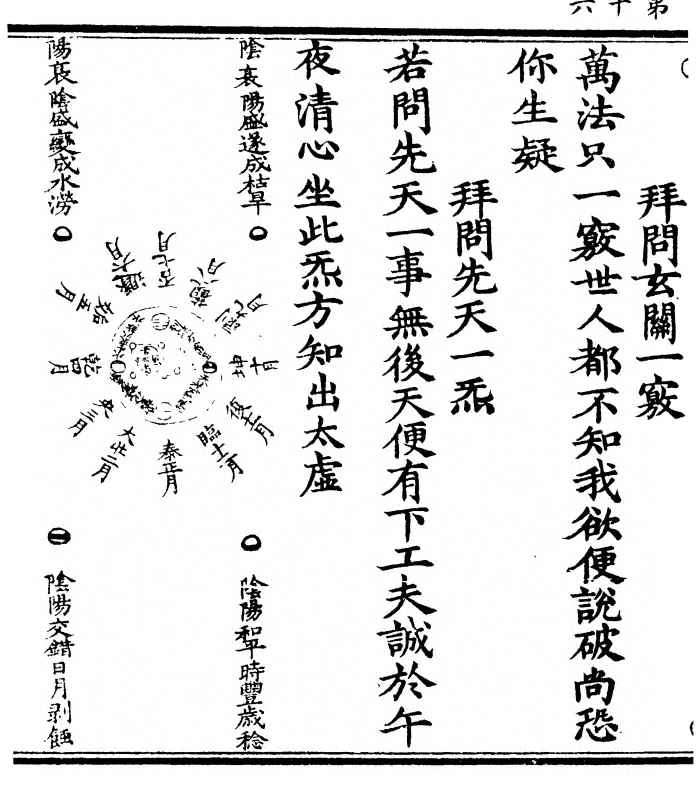 第十六
拜問玄關一竅
萬法只一竅世人都不知我欲便說破尚恐
你生疑
拜問先天一炁
若問先天一事無後天便有下工夫誠於午
夜清心坐此炁方知出太虛
陰衰陽盛遂成枯旱
陰陽和平時豐歲稔
陽衰陰盛變成水澇
陰陽交錯日月剥蝕
泰正月
大壯二月
夬三月
乾四月
姤五月
遯六月
否七月
觀八月
剝九月
坤十月
復十一月
臨十二月